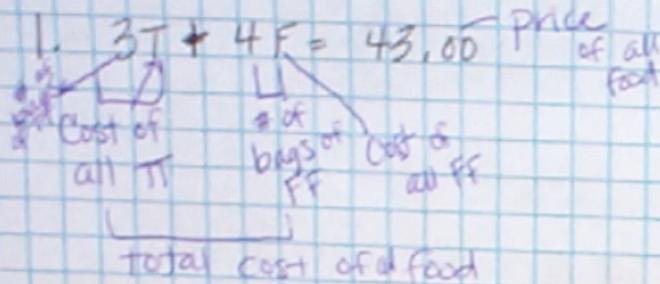 1. 3T + 4F = 43.00 price
of all
food
Cost of
all TT
# of
bags of
FF
Cost of
all FF
total cost of food